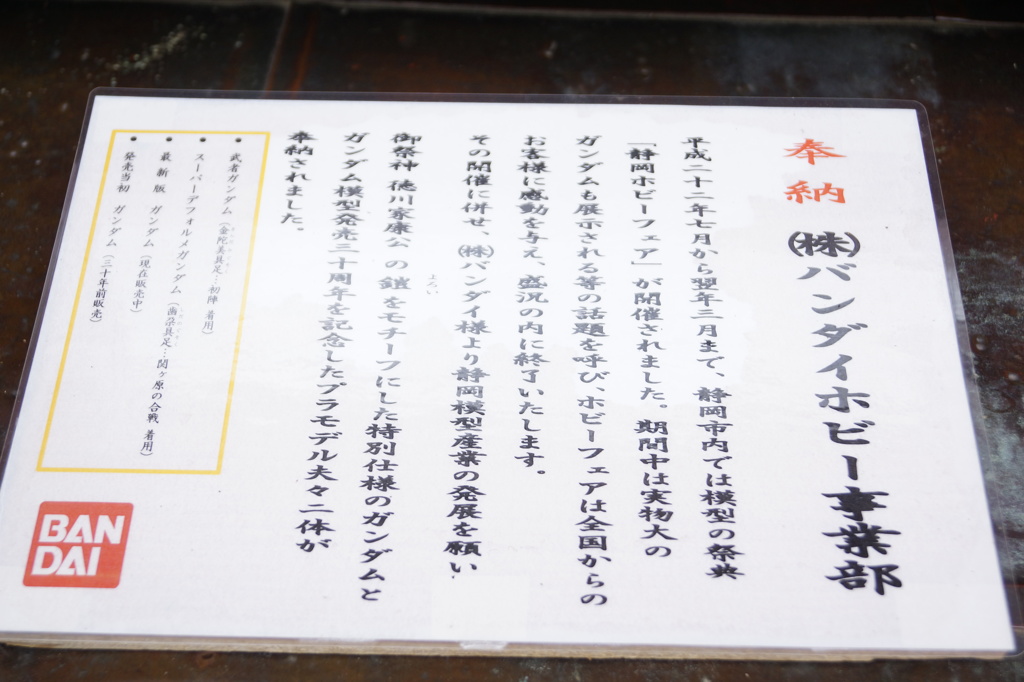 奉納 ㈱バンダイホビー事業部
平成二十二年七月から翌年三月まで、静岡市内では模型の祭典
「静岡ホビーフェア」が開催されました。期間中は実物大の
ガンダムも展示される等の話題を呼び、ホビーフェアは全国からの
お客様に感動を与え、盛況の内に終了いたします。
その開催に併せ、㈱バンダイ様より静岡模型産業の発展を願い
御祭神 徳川家康公の鎧をモチーフにした特別仕様のガンダムと
よろい
ガンダム模型発売三十周年を記念したプラモデル夫々二体が
奉納されました。
• 武者ガンダム(金陀美具足…初陣 着用)
• スーパーデフォルメガンダム(歯朶具足…関ヶ原の合戦 着用)
• 最新版 ガンダム(現在販売中)
• 発売当初 ガンダム(三十年前販売)
BAN
DAI